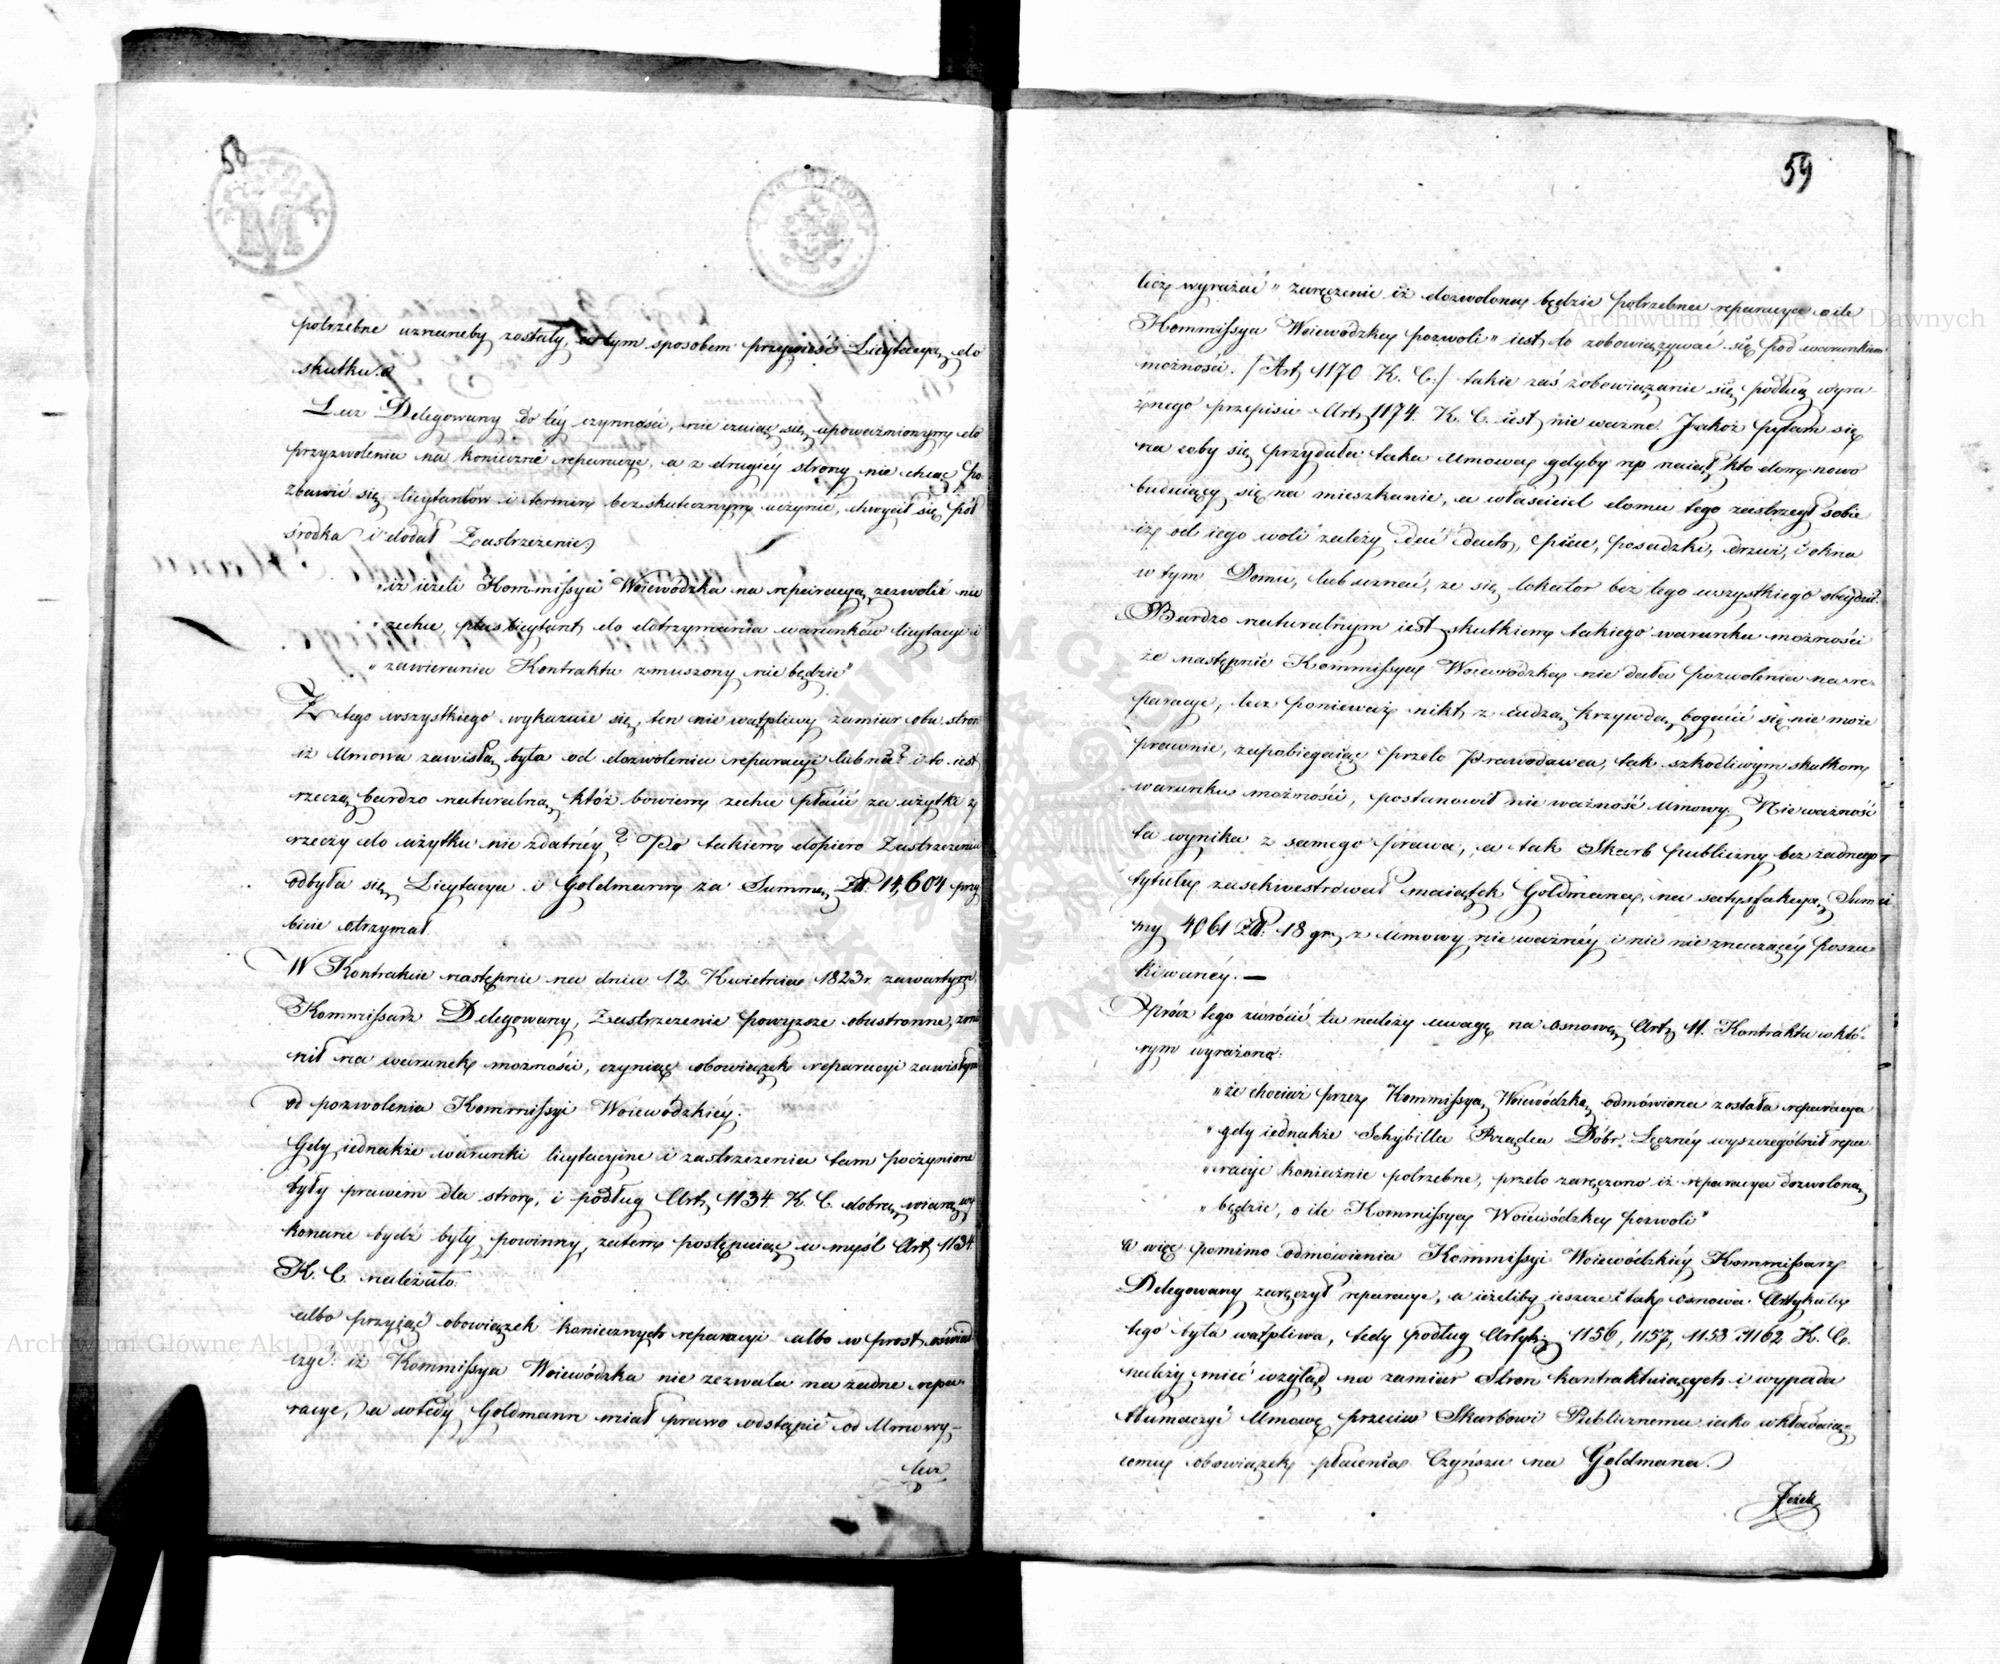 58
potrzebne uznaneby zostały, a tym sposobem przywieść Licytacyą do
skutku.
Lecz Delegowany do téy czynności, nie czuiąc się upoważnionym do
przyzwolenia na konieczné reparacye, a z drugiéy strony nie chcąc po-
zbawić się licytantów i termin bezskutecznym uczynić, chwycił się pół
środka i dodał Zastrzeżenie
„iż ieżeli Kommissya Woiewódzka na reparacyą zezwolić nie
„zechce, plus licytant do dotrzymania warunków licytacyi i
„zawierania Kontraktu zmuszony nie będzie"
Z tego wszystkiego wykazuie się, ten nie wątpliwy zamiar obu stron
iż Umowa zawisłą była od dozwolenia reparacyi lub nié? i to iest
rzeczą bardzo naturalną, któż bowiem zechce płacić za użytki z
rzeczy do użytku nie zdatnéy? Po takiem dopiero Zastrzeżeniu
odbyła się Licytacya i Goldmann za Summę Zł: 14,604 przy
bicie otrzymał.
W Kontrakcie następnie na dniu 12 Kwietnia 1823 r. zawartym,
Kommissarz Delegowany, Zastrzeżenie powyższe obustronne, zmie
nił na warunek możności, czyniąc obowiązek reparacyi zawisłym
od pozwolenia Kommissyi Woiewódzkiéy.
Gdy iednakże warunki licytacyine i zastrzeżenia tam poczynione
były prawem dla stron, i podług Art. 1134 K. C. dobrą wiarą wy
konane bydź były powinny, zatem postępuiąc w myśl Art. 1134
K. C. należało.
albo przyjąć obowiązek koniecznych reparacyi albo w prost oświad
czyć: iż Kommissya Woiewódzka nie zezwala na żadne repa-
racye, a wtedy Goldmann miał prawo odstąpić od Umowy-
lecz
59
lecz wyrażać „zaręczenie iż dozwoloną będzie potrzebna reparacya o ile
Kommissya Woiewódzka pozwoli" iest to zobowiązywać się pod warunkiem
możności. /:Art. 1170 K. C:/ takie zaś zobowiązanie się podług wyra-
źnego przepisu Art. 1174. K. C. iest nie ważne. Jakoż pytam się
na coby się przydała taka Umowa, gdyby np naiął kto dom nowo
buduiący się na mieszkanie, a właściciel domu tego zastrzegł sobie
iż od iego woli zależy dać dach, piece, posadzki, drzwi, i okna
w tym Domu, lub uznać, że się lokator bez tego wszystkiego obeydzie.
Bardzo naturalnym iest skutkiem takiego warunku możności
że następnie Kommissya Woiewódzka nie dała pozwolenia na re-
paracye, lecz ponieważ nikt z cudzą krzywdą bogacić się nie może
prawnie, zapobiegaiąc przeto Prawodawca, tak szkodliwym skutkom
warunku możności, postanowił nie ważność Umowy. Nie ważność
ta wynika z samego prawa, a tak Skarb publiczny bez żadnego
tytułu zasekwestrował maiątek Goldmana, na satysfakcyą Sum
my 4061 Zł: 18 gr, z Umowy nie ważnéy i nic nie znaczącéy poszu
kiwanéy. —
Oprócz tego zwrócić tu należy uwagę na osnowę Art. 11. Kontraktu w któ-
rym wyrażono:
„że chociaż przez Kommissyą Woiewódzką odmówiona została reparacya
„gdy iednakże Schybilla Rządca Dóbr Łęcznéy wyszczególnił repa
„racye koniecznie potrzebne, przeto zaręczono iż reparacya dozwoloną
„będzie, o ile Kommissya Woiewódzka pozwoli"
a więc pomimo odmówienia Kommissyi Woiewódzkiéy Kommissarz
Delegowany zaręczył reparacye, a ieżeliby ieszcze i tak osnowa Artykułu
tego była wątpliwa, tedy podług Artyk: 1156, 1157, 1153 i 1162 K. C.
należy mieć wzgląd na zamiar Stron kontraktuiących i wypada
tłumaczyć Umowę przeciw Skarbowi Publicznemu iako wkładaią-
cemu obowiązek płacenia Czynszu na Goldmana.
Jeżeli
Archiwum Główne Akt Dawnych
Archiwum Główne Akt Dawnych